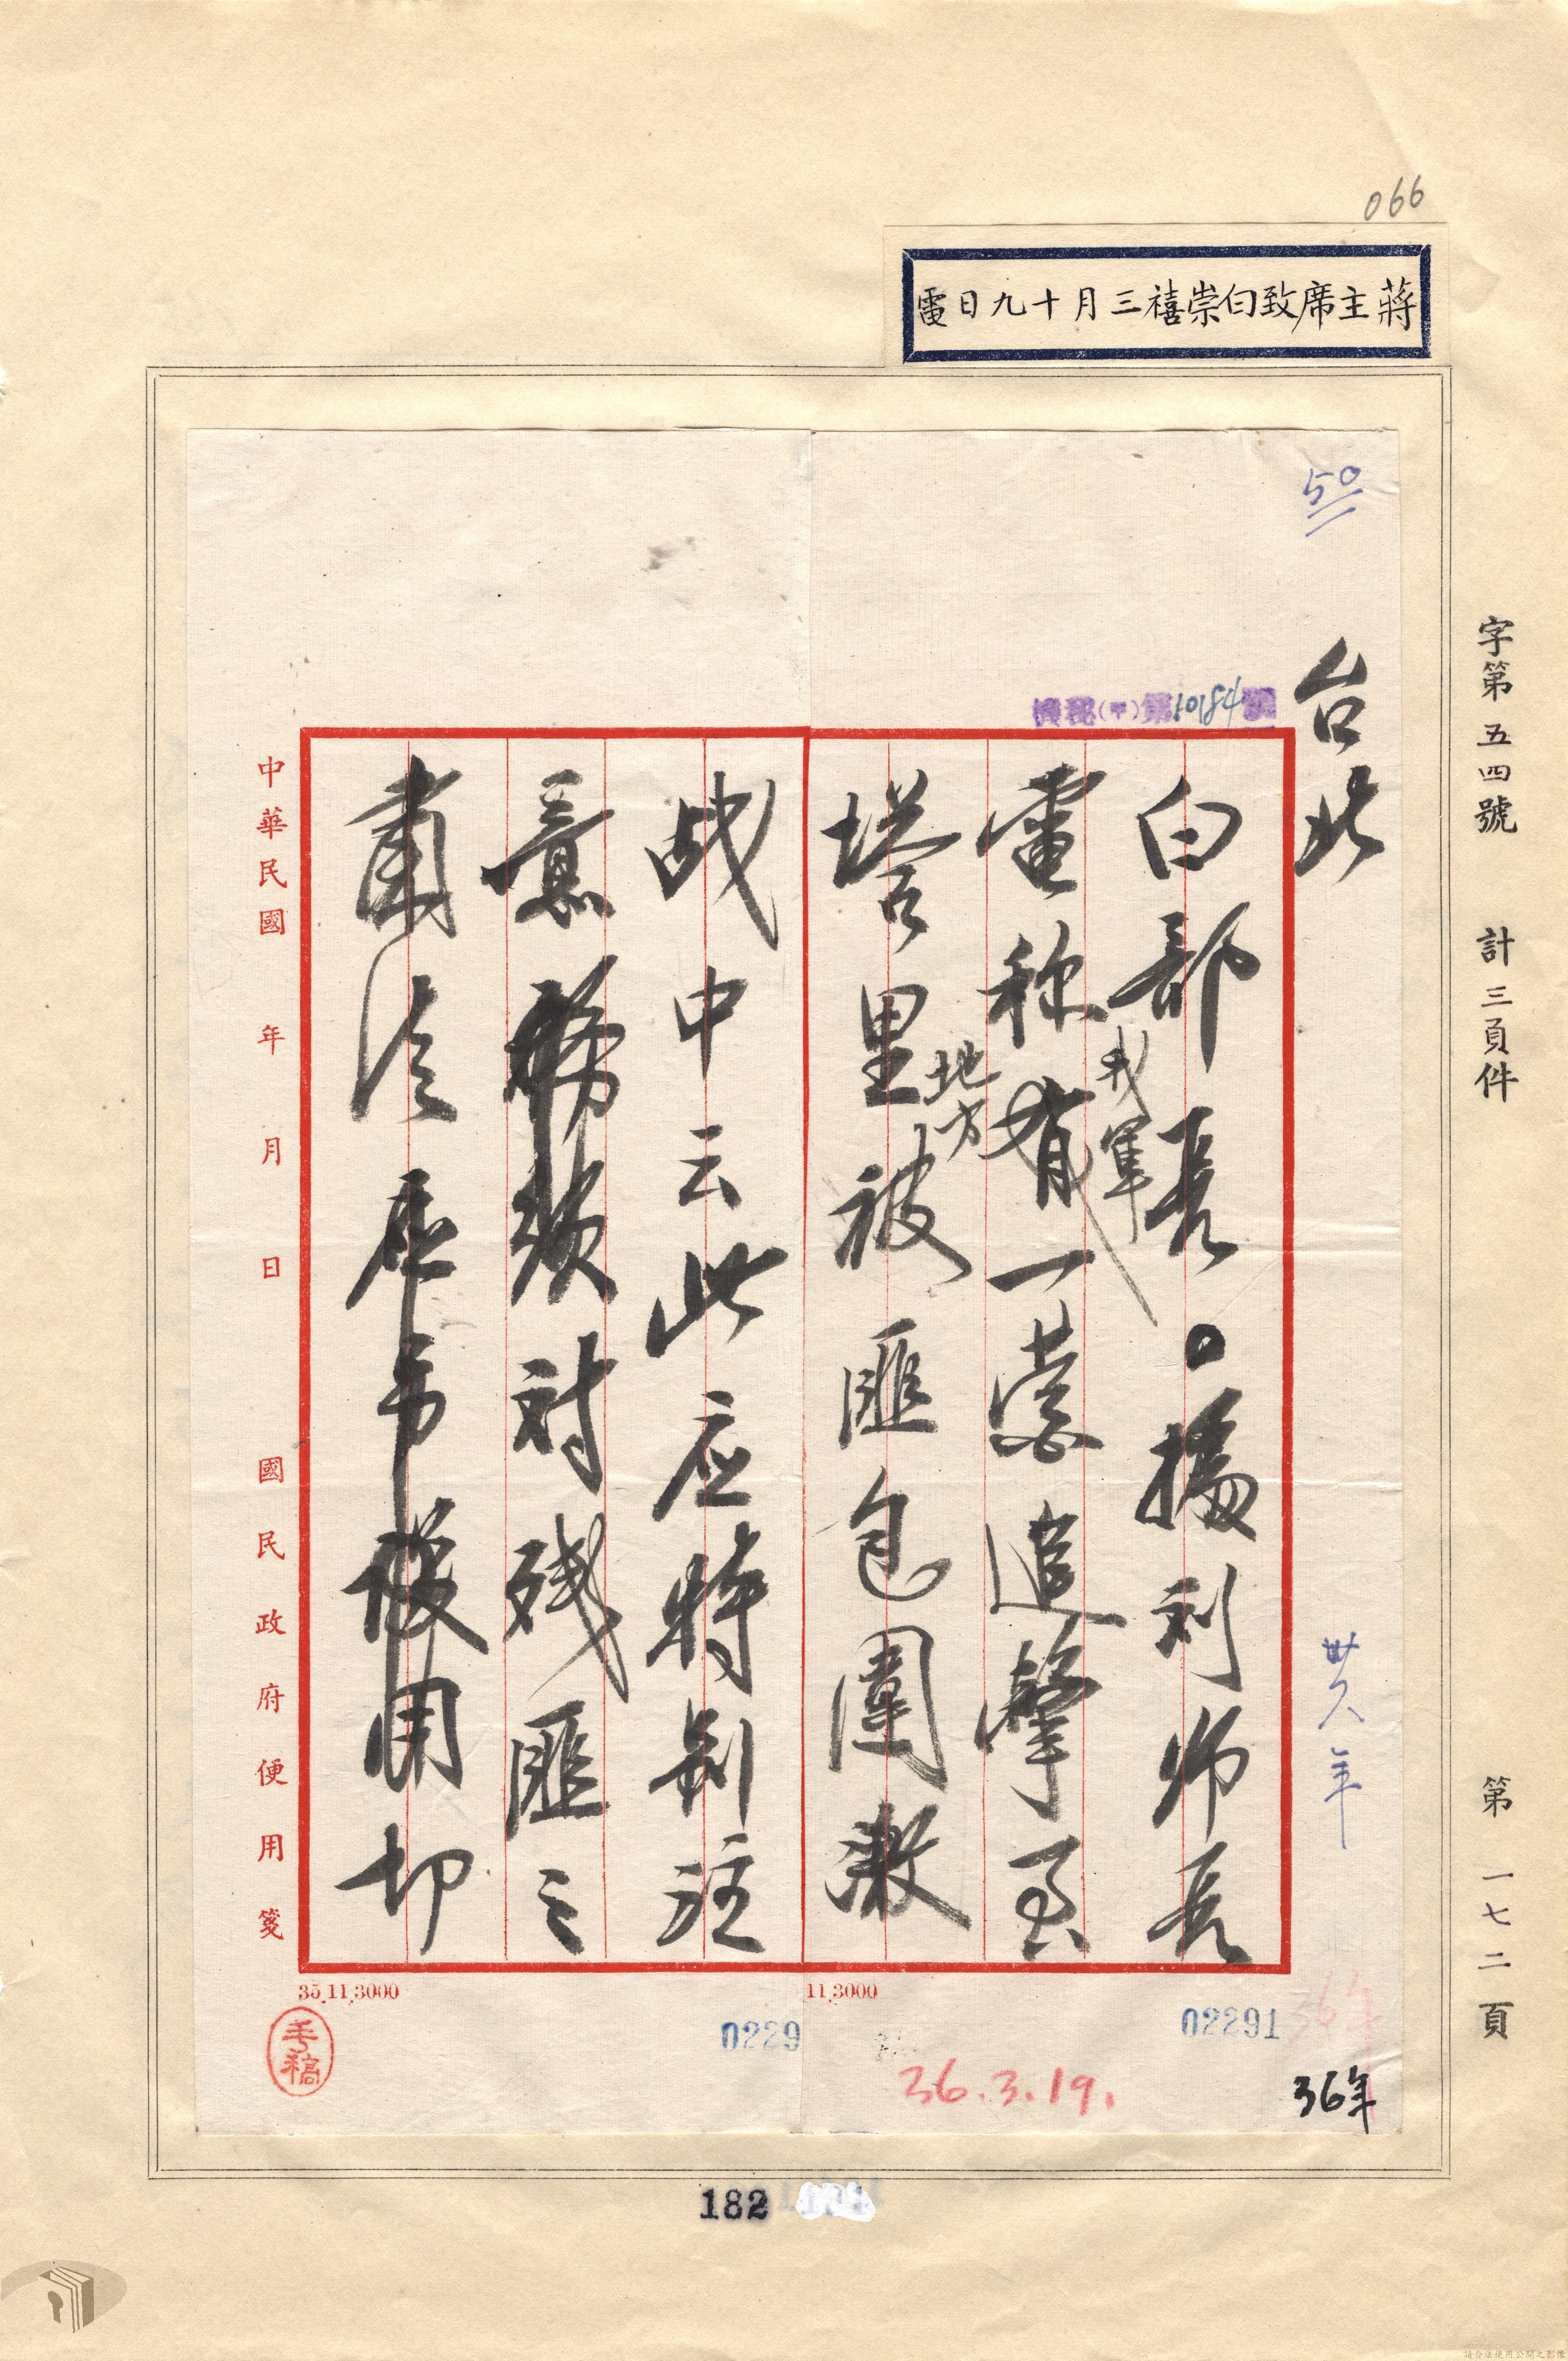 066
蔣主席致白崇禧三月十九日電
字第五四號 計三頁件 第一七二頁
50
機秘(甲)第10184號
台北
卅六年
白部長。據劉師長
電稱我軍有一營追擊至
埔里地方被匪包圍激
战中云此应特别注
意務须对残匪之
肅清
切
中華民國 年 月 日 國民政府便用箋
35.11.3000
11.3000
手稿
0229
02291
36年
36.3.19.
36年
182
請合法使用公開之影像